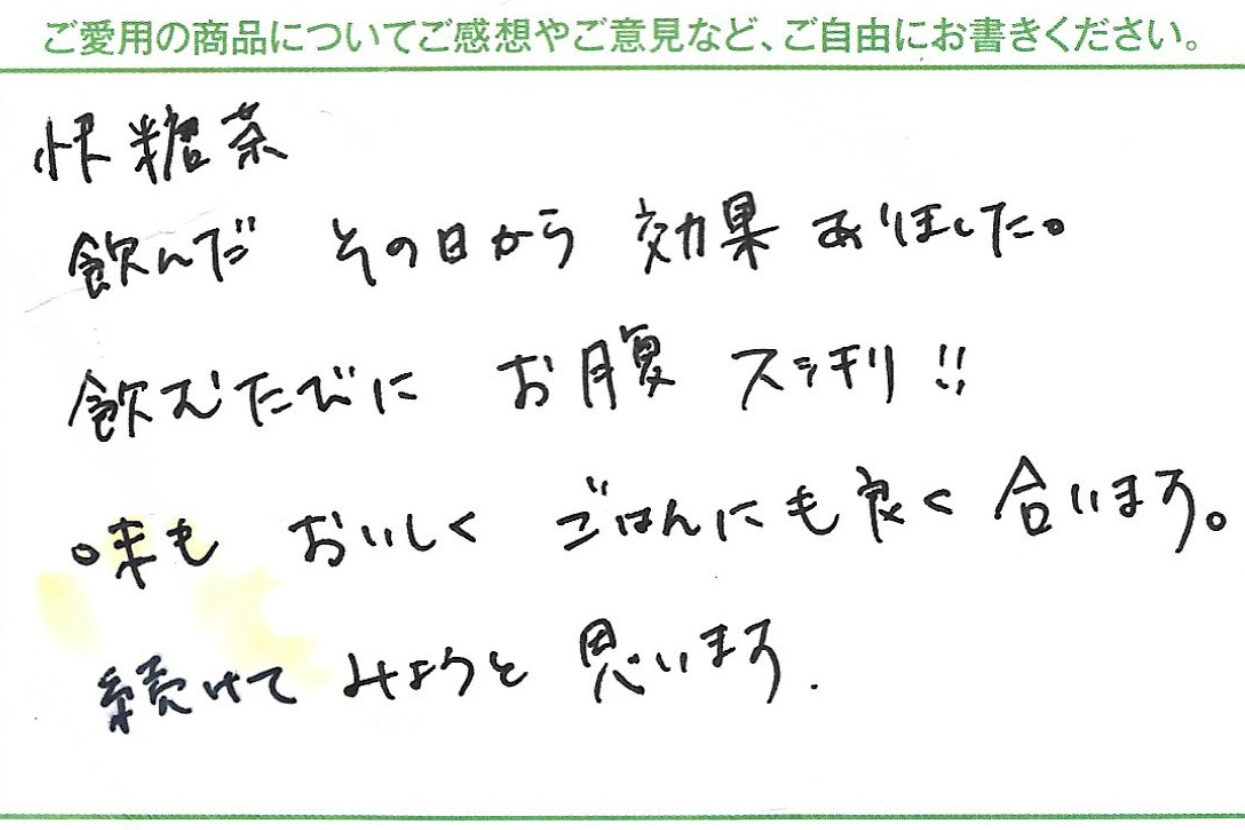 ご愛用の商品についてご感想やご意見など、ご自由にお書きください。
快糖茶
飲んだ その日から 効果 ありました。
飲むたびに お腹 スッキリ!!
味も おいしく ごはんにも良く 合います。
続けて みようと 思います.